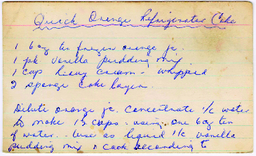 Quick Orange Refrigerator Cake
1 6 oz fr frozen orange jc.
1 pk vanilla pudding mix
1 cup heavy cream - whipped
2 sponge cake layers
Dilute orange jc. concentrate c water
to make 1 1/2 cups - using one 6 oz tin
of water. Use as liquid c vanilla
pudding mix & cook according to